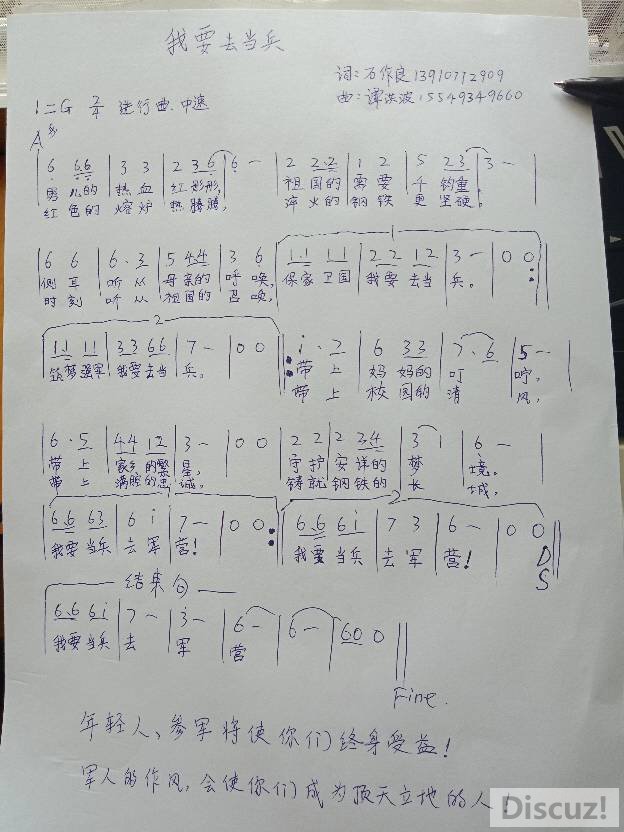 我要去当兵
词：石作良13910712909
1=G 2/4 进行曲.中速
曲：谭洪波15549349660
A
6 66 | 3 3 | 2 36 | 6 - | 2 2.2 | 1 2 | 5 23 | 3 - |
男儿的 热血 红彤彤, 祖国的 需要 千钧重
红色的 熔炉 热腾腾, 淬火的 钢铁 更坚硬。
6 6 | 6.3 | 5 44 | 3 6 | 1.1 11 | 22 12 | 3 - | 0 0 :
侧耳 听从 母亲的 呼唤, 保家卫国 我要去当 兵。
时刻 听从 祖国的 召唤,
2
1.1 11 | 33 66 | 7 - | 0 0 | : i.2 | 6 33 | 7.6 | 5 - |
筑梦强军 我要去当 兵。 带上 妈妈的 叮 咛,
带上 校园的 清 风,
6.5 | 44 12 | 3 - | 0 0 | 2 2 | 2 34 | 3 1 | 6 - |
带上 家乡的繁 星, 守护 安详的 梦 境。
带上 满腔的忠 诚, 铸就 钢铁的 长 城,
6.6 63 | 6 i | 7 - | 0 0 : | 6.6 6i | 7 3 | 6 - | 0 0 ||
我要当兵 去军 营! 我要当兵 去军 营! D
S
结束句
6.6 6i | 7 - | 3 - | 6 - | 6 - | 60 0 ||
我要当兵 去 军 营
Fine.
年轻人、参军将使你们终身受益!
军人的作风,会使你们成为顶天立地的人!
Discuz!